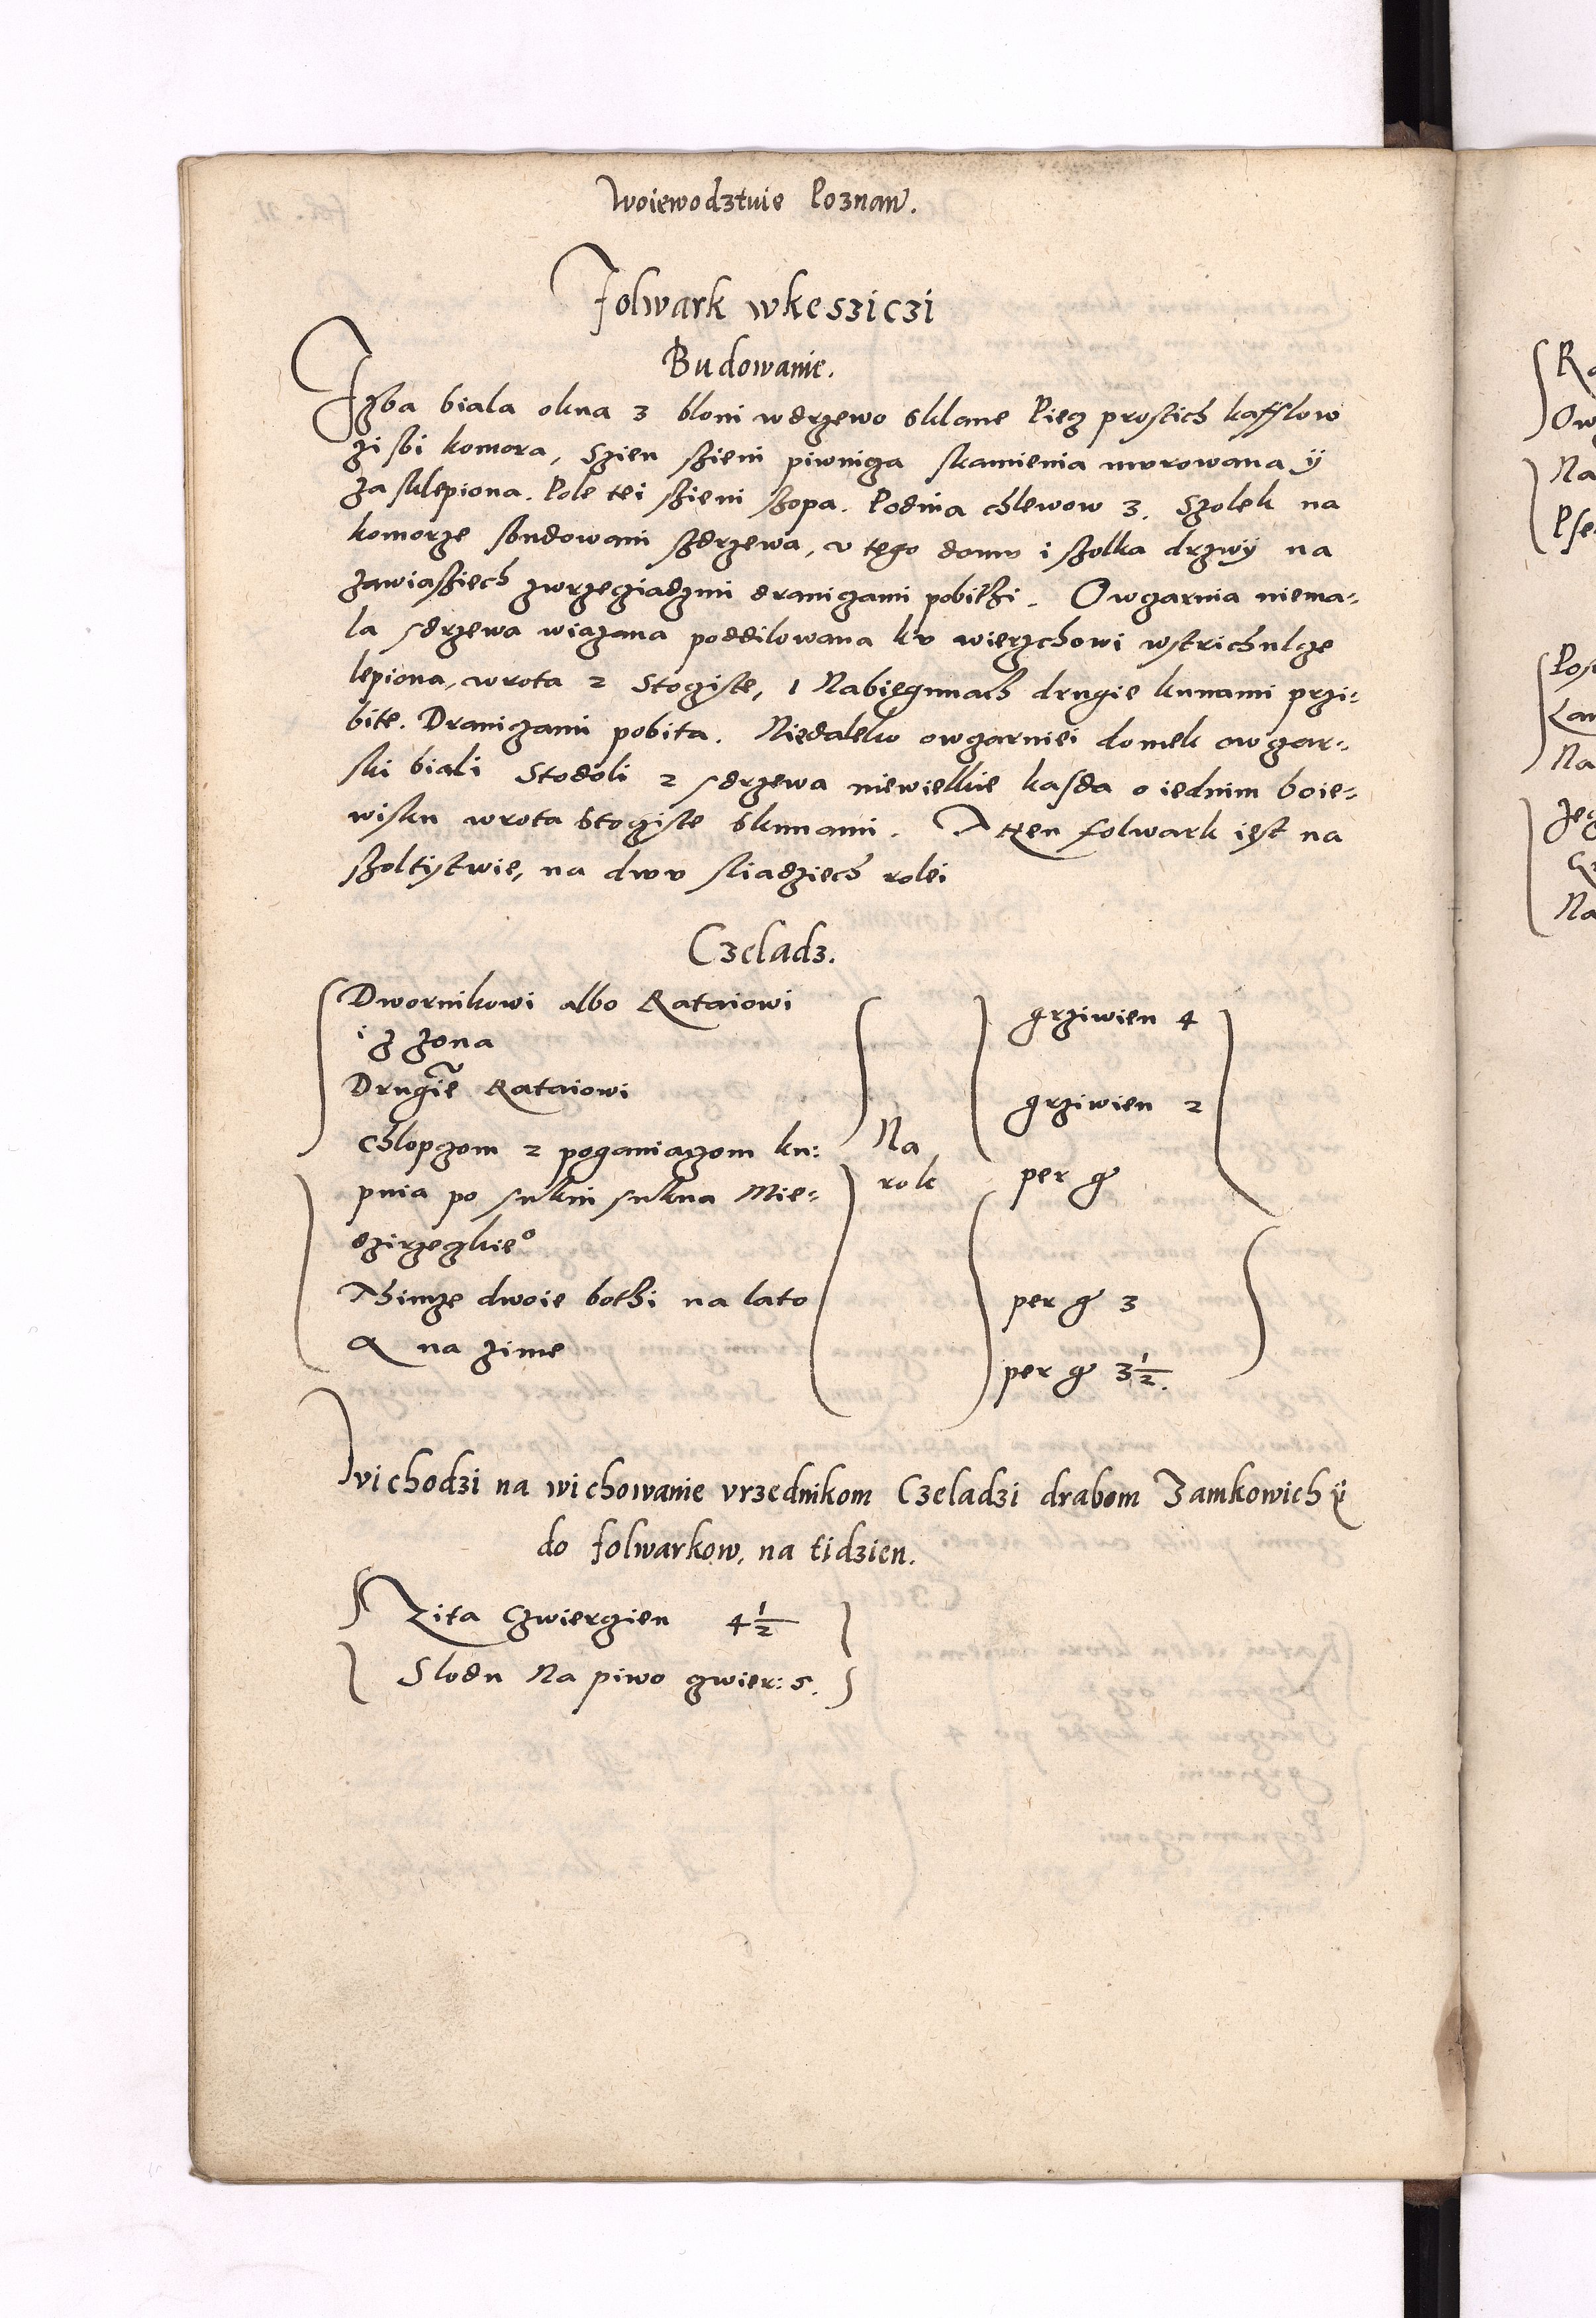 Woiewodztwie Poznan.
Folwark wkesziczi
Budowanie.
Izba biala okna 3 bloni wdrzewo sklane Piecz prostich kafflow
zisbi komora, Szien szieni piwnicza skamienia murowana ÿ
zasklepiona. Pole tei szieni szopa. Podnia chlewow 3. Szolek na
komorze sbudowani szdrzewa, v tego domu i szolka drzwÿ na
zawiasziech zwrzecziadzmi draniczami pobithi. Owczarnia niema-
la sdrzewa wiazana poddilowana kv wierzchowi wstrichulcze
lepiona, wrota 2 Stocziste, 1 Nabiegunach drugie kunami przi-
bite. Draniczami pobita. Niedaleko owczarniei domek owczar-
ski biali Stodoli 2 sdrzewa niewielkie kasda o iednim boie-
wisku wrota Stocziste skunami. A ten folwark iest na
szoltistwie, na dwv sliadziech rolei
Czeladz.
Dwornikowi albo Rataiowi
iz zona
grziwien 4
Drugie Rataiowi
grziwien 2
Chlopczom 2 poganiaczom ku:
Na
pnia po sukni sukna Mie-
rok
per g
dzirzeczkieo
Thimze dwoie bothi na lato
per g 3
A na zime
per g 3 1/2.
Wichodzi na wichowanie vrzednikom Czeladzi drabom Zamkowich ÿ
do folwarkow, na tidzien.
Zita Czwierczien 4 1/2
Slodu Na piwo czwier: 5.